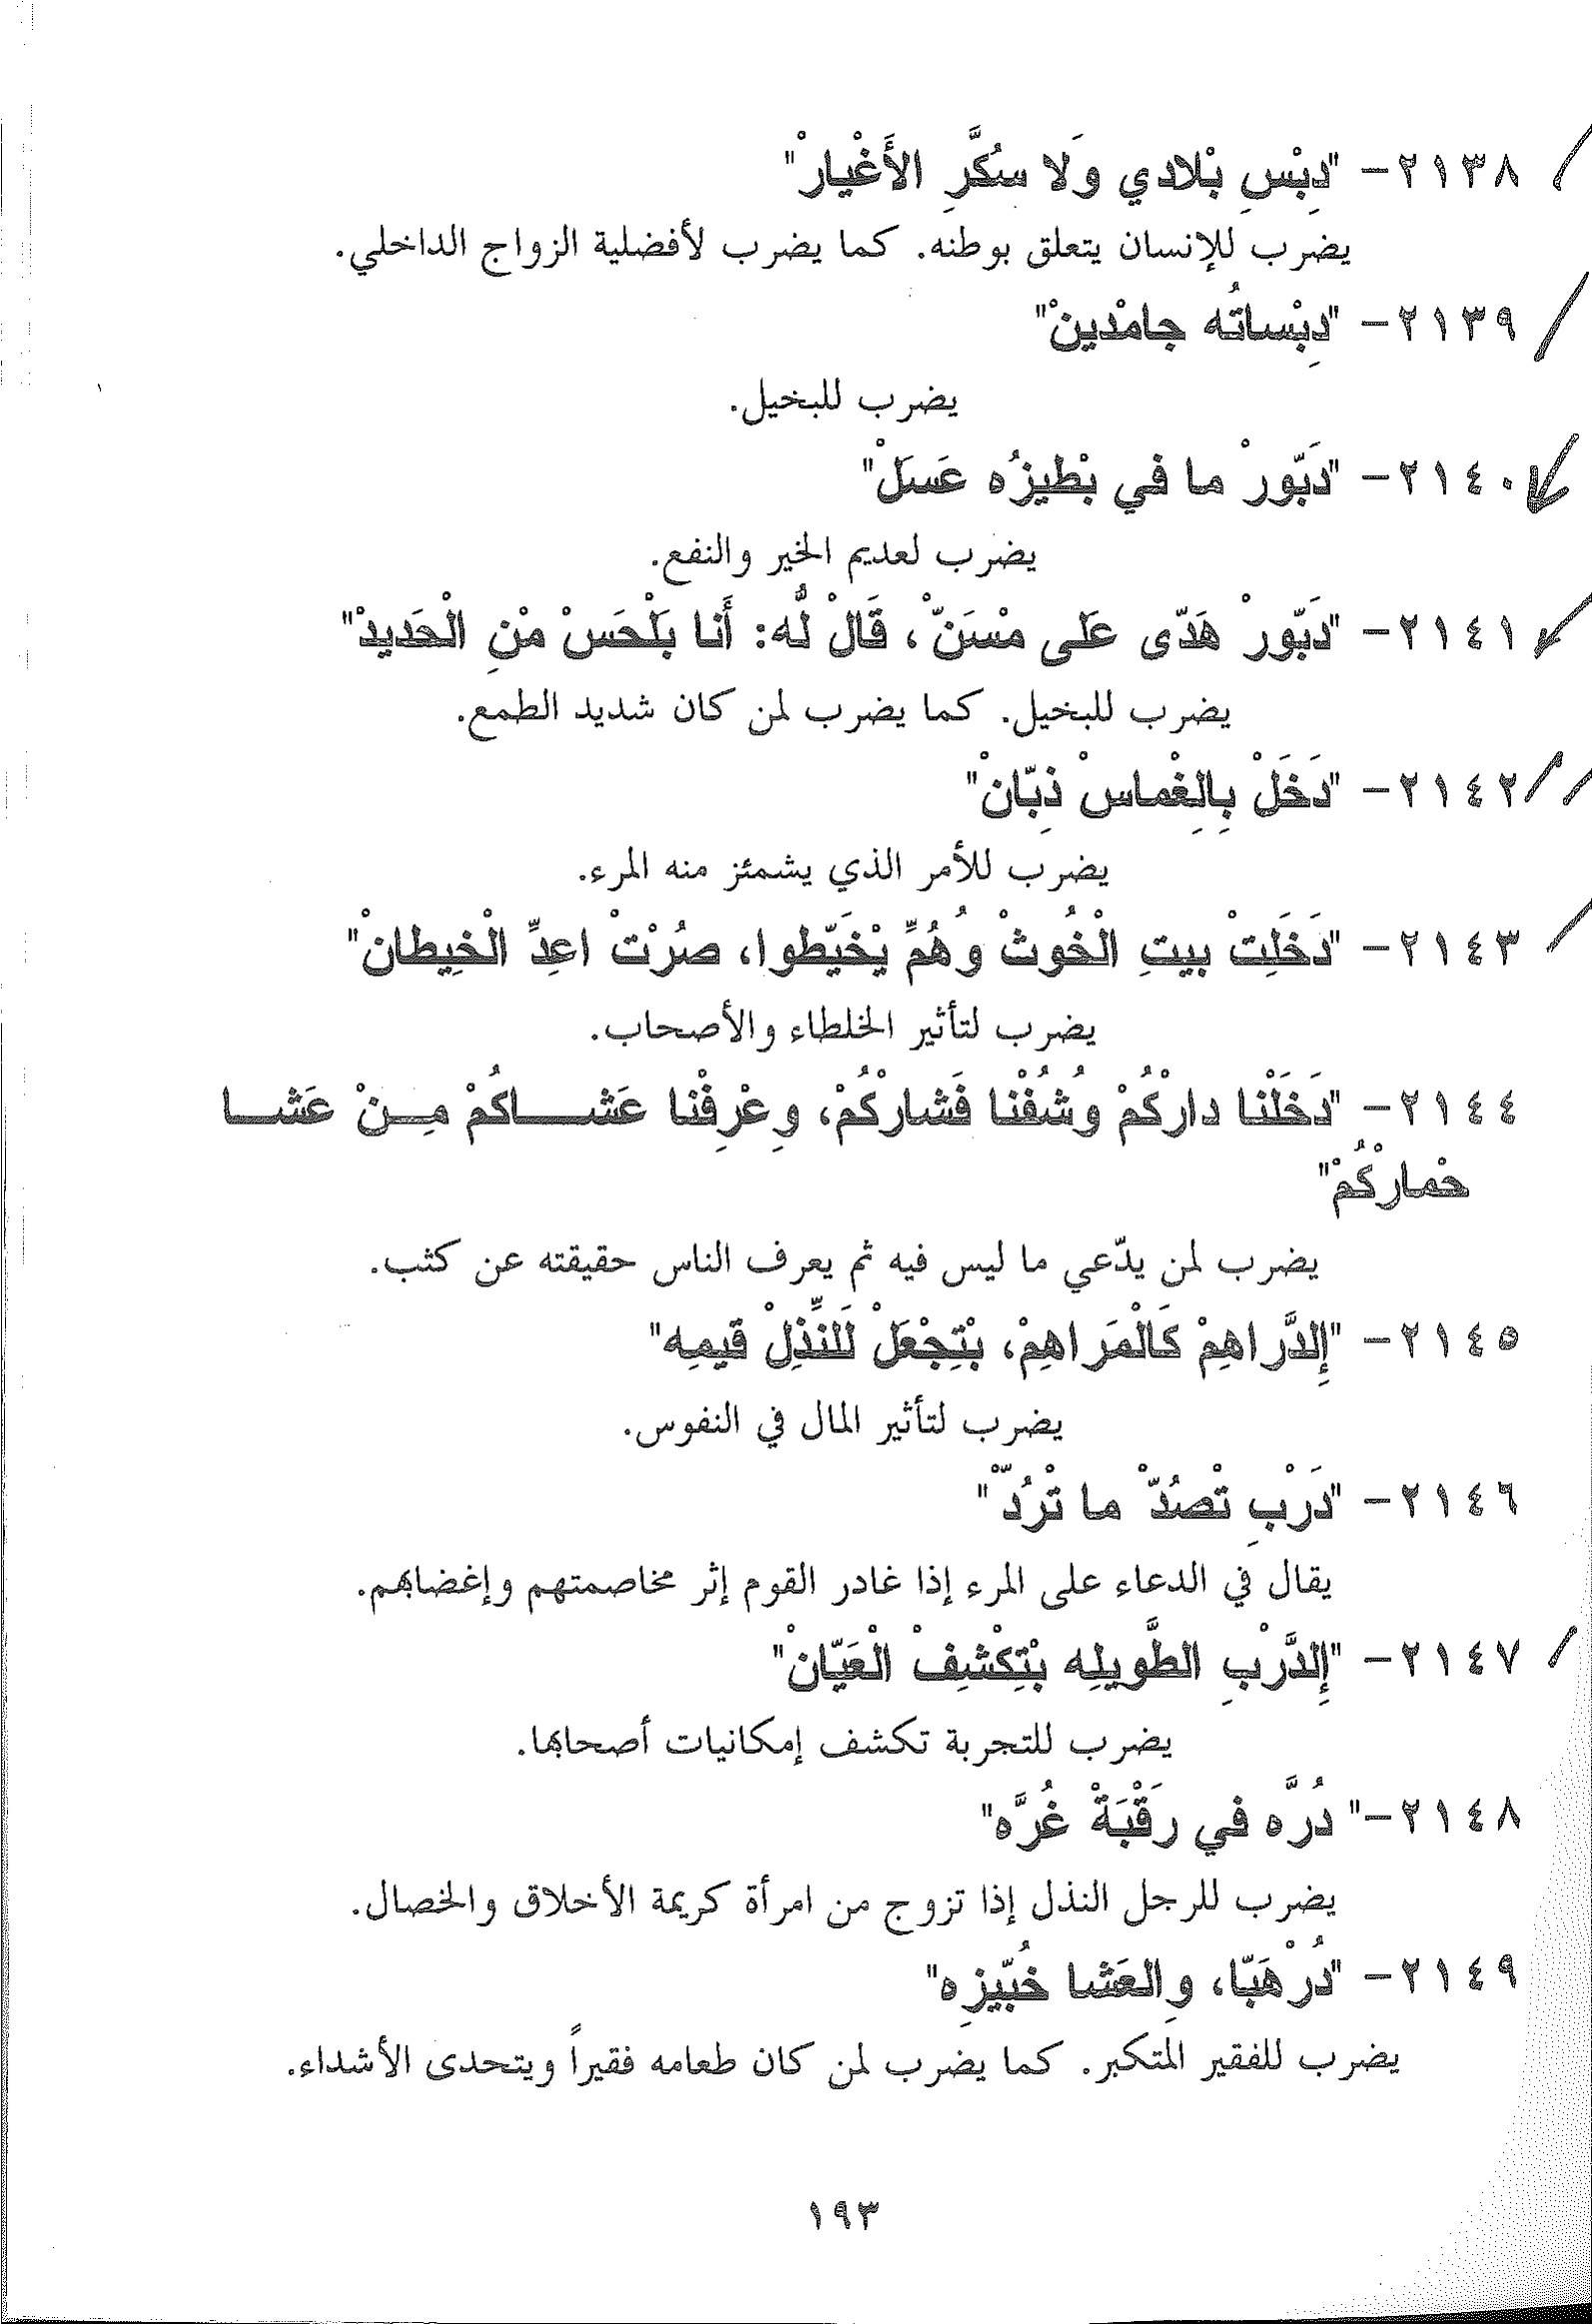 ٢١٣٨- "دِبْسِ بْلادي وَلا سُكَّرِ الأَغْيارْ"
يضرب للإنسان يتعلق بوطنه. كما يضرب لأفضلية الزواج الداخلي.
٢١٣٩- "دِبْساتُه جامْدينْ"
يضرب للبخيل.
٢١٤٠- "دَبّورْ ما في بْطيزُه عَسَلْ"
يضرب لعديم الخير والنفع.
٢١٤١- "دَبّورْ هَدّى عَلى مْسَنّْ، قَالْ لُه: أَنا بَلْحَسْ مْنِ الْحَديدْ"
يضرب للبخيل. كما يضرب لمن كان شديد الطمع.
٢١٤٢- "دَخَلْ بِالِغْماسْ ذِبّانْ"
يضرب للأمر الذي يشمئز منه المرء.
٢١٤٣- "دَخَلِتْ بيتِ الْخُوثْ وُهُمِّ يْخَيّطوا، صُرْتْ اعِدِّ الْخِيطانْ"
يضرب لتأثير الخلطاء والأصحاب.
٢١٤٤- "دَخَلْنا دارْكُمْ وشُفْنا فَشارْكُمْ، وِعْرِفْنا عَشــاكُمْ مِــنْ عَشــا
حْمارْكُمْ"
يضرب لمن يدّعي ما ليس فيه ثم يعرف الناس حقيقته عن كثب.
٢١٤٥- "إِلدَّراهِمْ كَالْمَراهِمْ، بْتِجْعَلْ لَلنِّذِلْ قيمِه"
يضرب لتأثير المال في النفوس.
٢١٤٦- "دَرْبِ تْصُدّْ ما تْرُدّْ"
يقال في الدعاء على المرء إذا غادر القوم إثر مخاصمتهم وإغضابهم.
٢١٤٧- "إِلدَّرْبِ الطَّويلِه بْتِكْشِفْ الْعَيّانْ"
يضرب للتجربة تكشف إمكانيات أصحابها.
٢١٤٨-" دُرَّه في رَقْبَةْ غُرَّه"
يضرب للرجل النذل إذا تزوج من امرأة كريمة الأخلاق والخصال.
٢١٤٩- "دُرْهَبّا، وِالعَشا خُبّيزِه"
يضرب للفقير المتكبر. كما يضرب لمن كان طعامه فقيراً ويتحدى الأشداء.
١٩٣